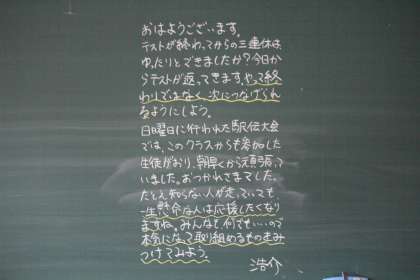 おはようございます。
テストが終わってからの三連休は、
ゆったりとできましたか？今日か
らテストが返ってきます。やって終
わりではなく、次につなげられ
るようにしよう。
日曜日に行われた駅伝大会
では、このクラスからも参加した
生徒がおり、朝早くから頑張って
いました。おつかれさまでした。
たとえ知らない人が走っていても
一生懸命な人は応援したくなり
ますね。みんなも何でもいいので
本気になって取り組めるものをみ
つけてみよう。
浩介